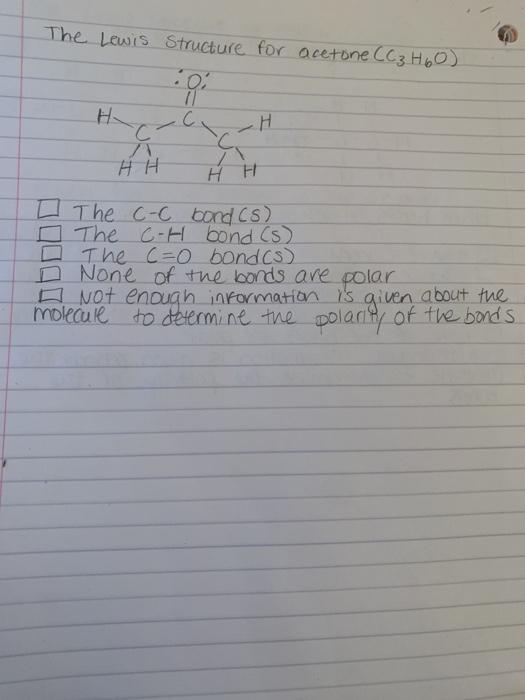 The Lewis Structure for acetone (C3H6O)
:O:
||
H C H
C C
H H H H
☐ The C-C bond(s)
☐ The C-H bond(s)
☐ The C=O bond(s)
☐ None of the bonds are polar
☐ Not enough information is given about the
molecule to determine the polarity of the bonds